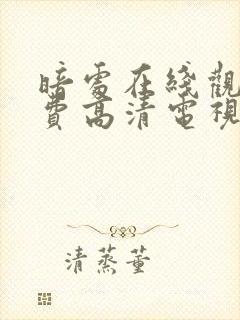 暗處在綫觀
費高清電視
清蒸董